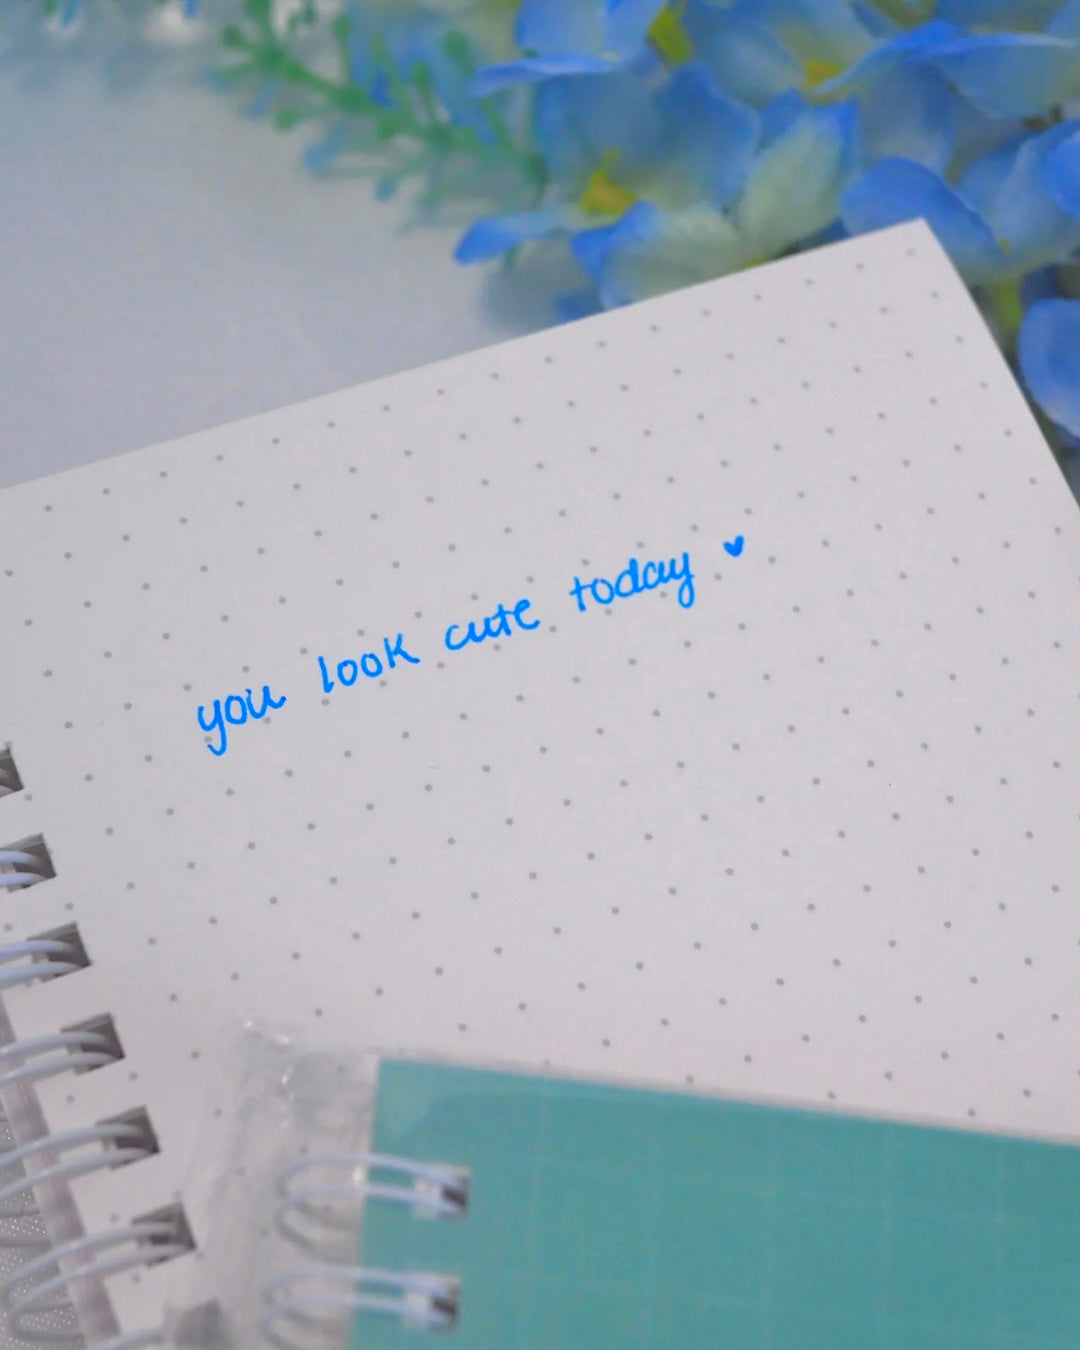 you look cute today ♥